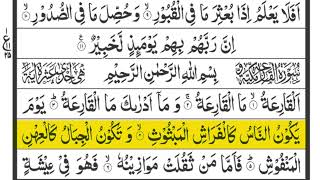 اَفَلَا يَعْلَمُ اِذَا بُعْثِرَ مَا فِى الْقُبُوْرِ ۙ۹ وَحُصِّلَ مَا فِى الصُّدُوْرِ ۙ
اِنَّ رَبَّهُمْ بِهِمْ يَوْمَىِٕذٍ لَّخَبِيْرٌ ۧ۱۱
بِسْمِ اللّٰهِ الرَّحْمٰنِ الرَّحِيْمِ
اَلْقَارِعَةُ ۙ۱ مَا الْقَارِعَةُ ۚ۲ وَمَاۤ اَدْرٰىكَ مَا الْقَارِعَةُ ۭ۳ يَوْمَ
يَكُوْنُ النَّاسُ كَالْفَرَاشِ الْمَبْثُوْثِ ۙ۴ وَ تَكُوْنُ الْجِبَالُ كَالْعِهْنِ
الْمَنْفُوْشِ ۭ۵ فَاَمَّا مَنْ ثَقُلَتْ مَوَازِيْنُهٗ ۙ۶ فَهُوَ فِىْ عِيْشَةٍ